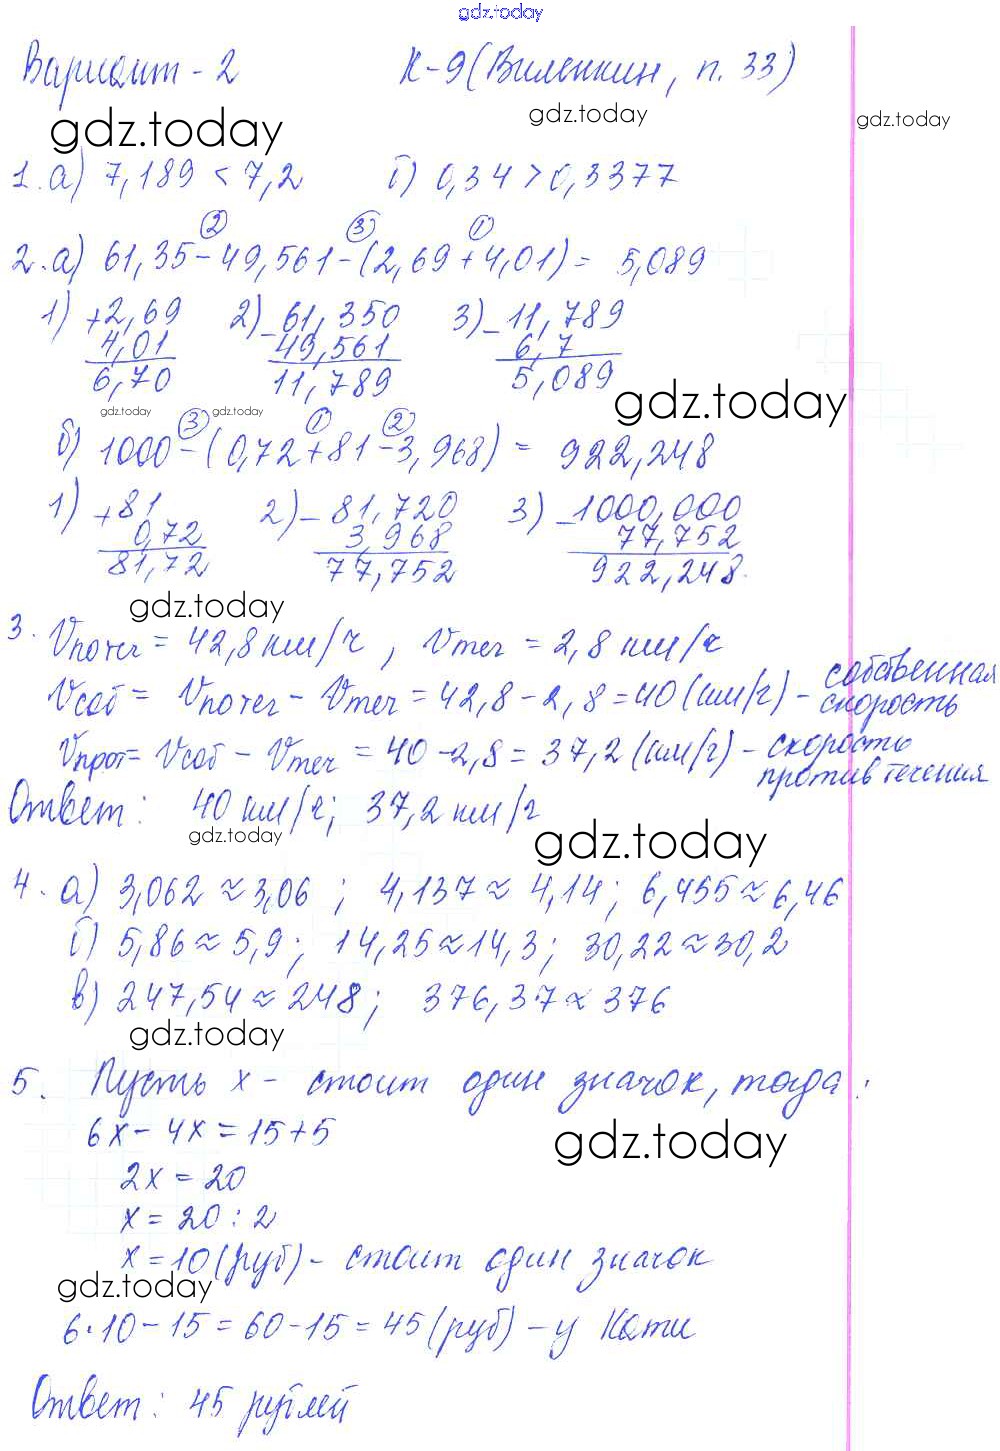 gdz.today
Вариант - 2 К-9 (Виленкин, п. 33)
gdz.today gdz.today gdz.today
1. а) 7,189 < 7,2 б) 0,34 > 0,3377
② ③ ①
2. а) 61,35 - 49,561 - (2,69 + 4,01) = 5,089
1) + 2,69 2) - 61,350 3) - 11,789
4,01 49,561 6,7
6,70 11,789 5,089
gdz.today gdz.today gdz.today
③ ① ②
б) 1000 - (0,72 + 81 - 3,968) = 922,248
1) + 81 2) - 81,720 3) - 1000,000
0,72 3,968 77,752
81,72 77,752 922,248.
gdz.today
3. Vпо теч = 42,8 км/ч, Vтеч = 2,8 км/ч
Vсоб = Vпо теч - Vтеч = 42,8 - 2,8 = 40 (км/ч) - собственная скорость
Vпрот = Vсоб - Vтеч = 40 - 2,8 = 37,2 (км/ч) - скорость против течения
Ответ: 40 км/ч; 37,2 км/ч
gdz.today gdz.today
4. а) 3,062 ≈ 3,06; 4,137 ≈ 4,14; 6,455 ≈ 6,46
б) 5,86 ≈ 5,9; 14,25 ≈ 14,3; 30,22 ≈ 30,2
в) 247,54 ≈ 248; 376,37 ≈ 376
gdz.today
5. Пусть х - стоит один значок, тогда:
6х - 4х = 15 + 5
gdz.today
2х = 20
х = 20 : 2
х = 10 (руб) - стоит один значок
gdz.today
6·10 - 15 = 60 - 15 = 45 (руб) - у Кати
Ответ: 45 рублей